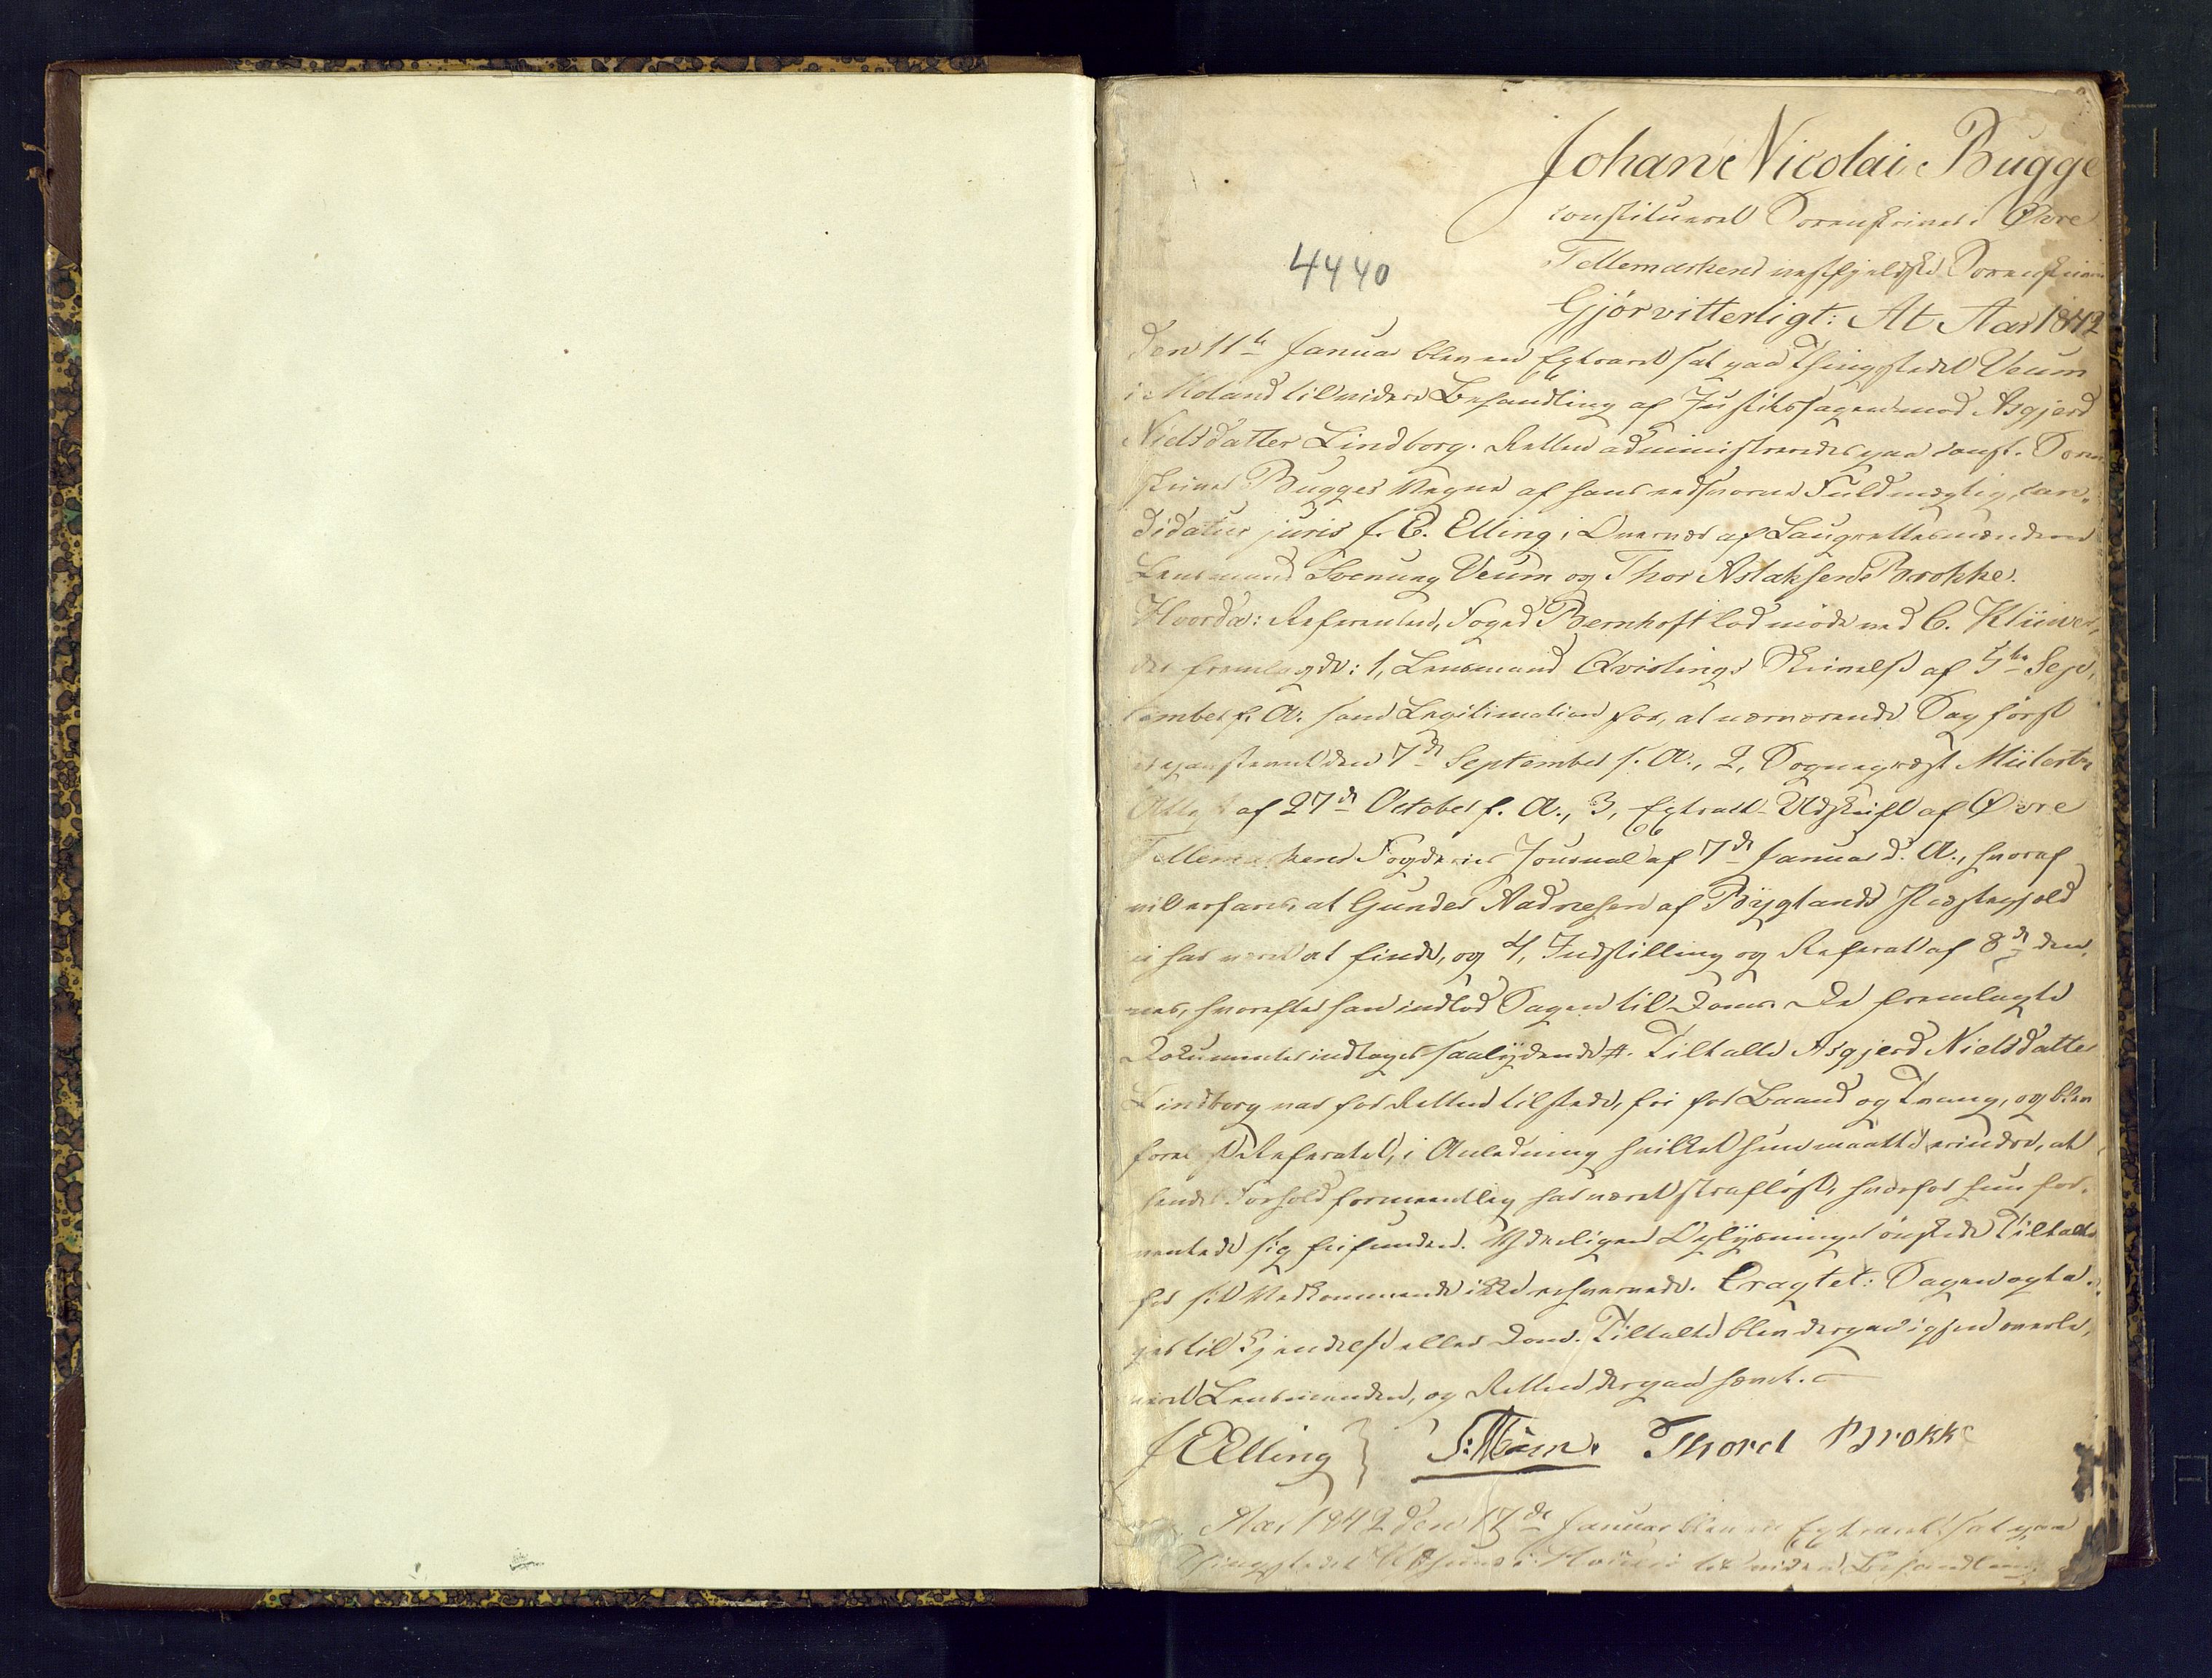 Johan Nicolai Bugge
constitueret Sorenskriver i Øvre
4440
Tellemarkens vestfjeldske Sorenskriveri
Gjör vitterligt: At Aar 1842
den 11te Januar blev en Extraret sat paa Thingstedet Veum
i Moland til videre Behandling af Justitssagen mod Asgjerd
Nielsdatter Lindborg. Retten administreredes paa const. Soren
skriver Bugges Vegne af hans edsvorne Fuldmægtig, can-
didatus juris J. E. Elling, i Overvær af Laugrettesmændene
Lensmand Svenung Veum og Thor Aslaksen Brokke.
Hvorda: Referenten, Foged Bernhoft lod möde ved C. Klüwer,
der fremlagde: 1, Lensmand Qvislings Skrivelse af 5te Sep-
tember f. A. som Legitimation for, at nærværende Sag först
er paastevnt den 7de September f. A., 2, Sogneprest
Attest af 27de October f. A., 3, Extract-Udskrift af Øvre
Tellemarkens Fogderies Journal af 7de Januar d. A., hvoraf
vil erfares, at Gunder Aadnesen af Byglands Præstegjeld
ei har været at finde, og 4, Indstilling og Referat af 8de den-
nes, hvorefter han indlod Sagen til Doms. De fremlagte
Documenter indtages saalydende #. Tiltalte Asgjerd Nielsdatter
Lindborg var for Retten tilstede, fri for Baand og Tvang, og blev
forelæst Referatet, i Anledning hvilket hun maatte erindre, at
hendes Forhold formeentlig har været straflöst, hvorfor hun for-
ventede sig frifunden. Yderligere Oplysninger önskede Tiltalte
for sit Vedkommende ikke erhvervede. Eragtet: Sagen opta-
ges til Kjendelse eller Dom. Tiltalte blev derpaa igjen overle-
veret Lensmanden, og Retten derpaa hævet.
J E Elling } S: Veum. Thord Brokke
Aar 1842 den 12de Januar blev en Extraret sat paa
Thingstedet i til videre Behandling